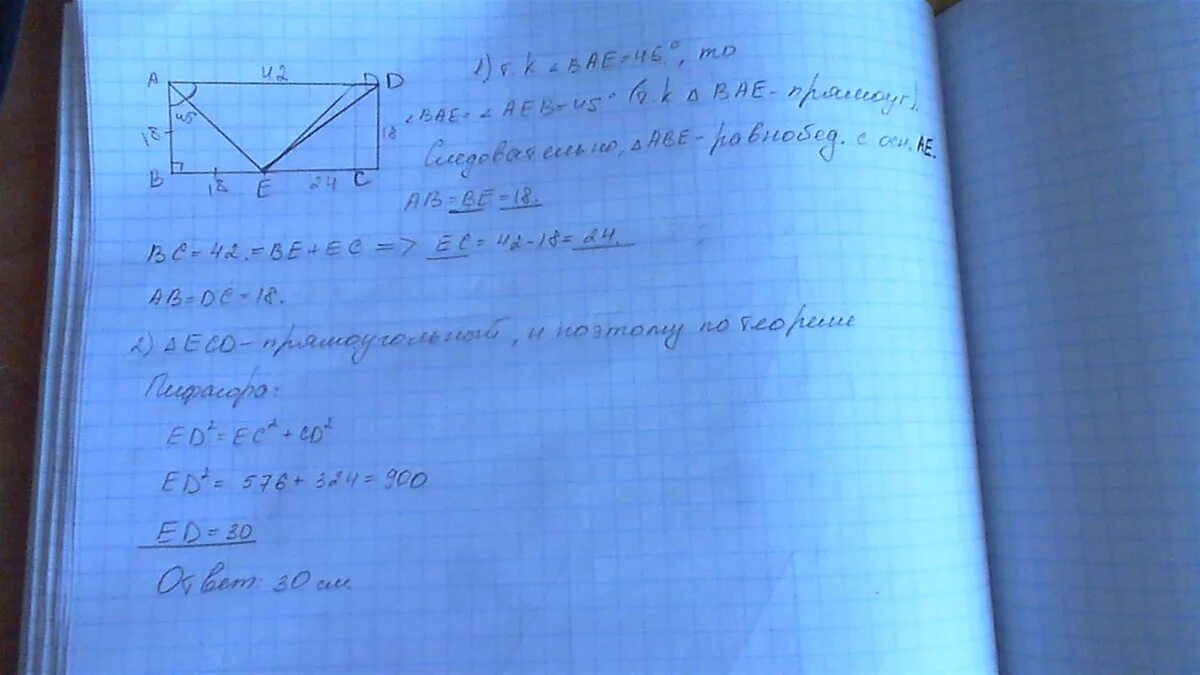 42
A D D
45°
18
18
B 18 E 24 C
1) т.к ∠BAE=45°, то
∠BAE=∠AEB=45° (т.к △BAE- прямоуг).
Следовательно, △ABE-равнобед. с осн. AE.
AB=BE=18.
BC=42.=BE+EC => EC=42-18=24.
AB=DC=18.
2) △ECD-прямоугольный, и поэтому по теореме
Пифагора:
ED²=EC²+CD²
ED²= 576+324=900
ED=30
Ответ: 30 см.